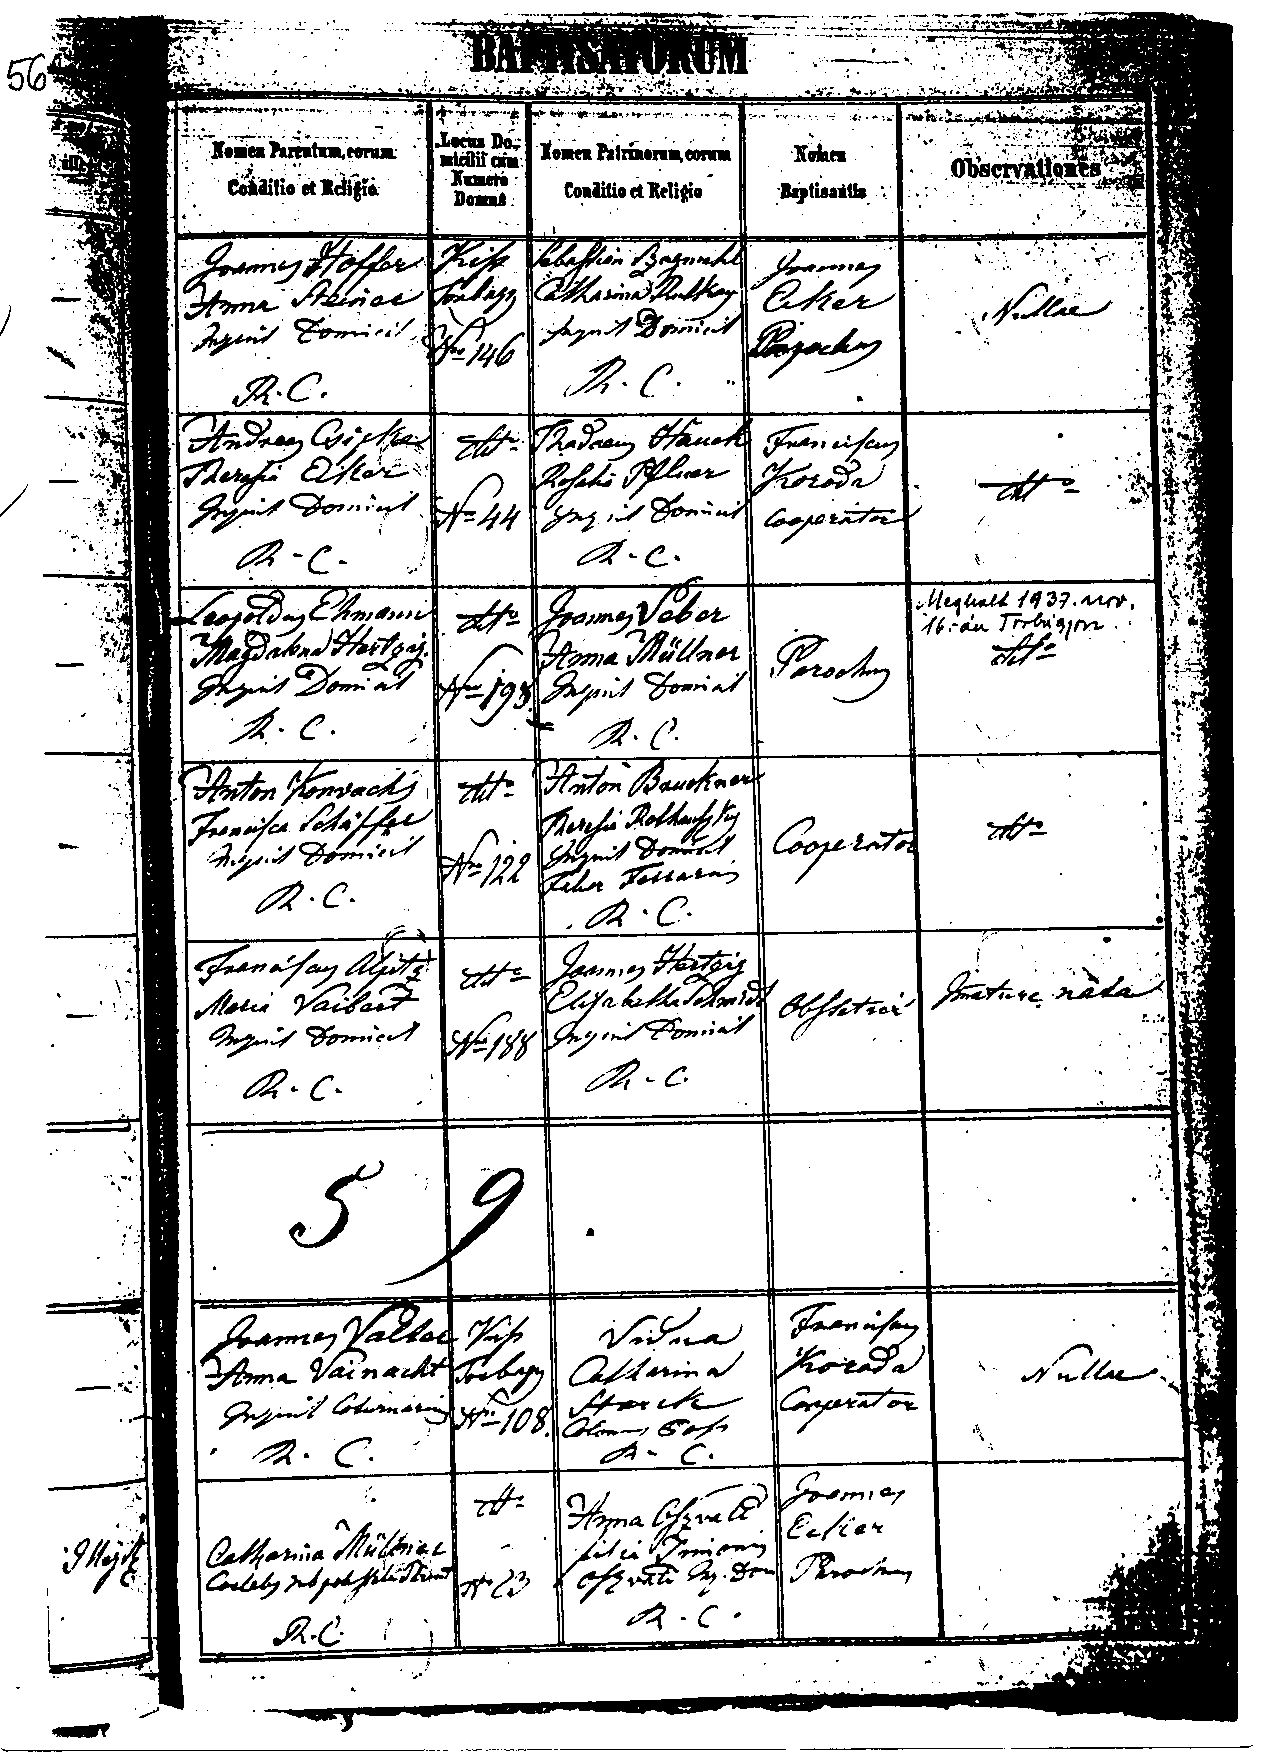 56
BAPTISATORUM
Nomen Parentum, eorum
Conditio et Religio
Locus Do-
micilii cum
Numero
Domus
Nomen Patrinorum, eorum
Conditio et Religio
Nomen
Baptisantis
Observationes
Joannes Hoffer
Anna Steiner
Inquil Domicil
R. C.
Kiss
Torbagy
Nro 146
Sebastian
Catharina
Inquil Domicil
R. C.
Joannes
Eker
Parochus
Nullae
Andreas Csipke
Theresia Eker
Inquil Domicil
R. C.
dtto
Nro 44
Thadeus Hauck
Rosalia Pfluer
Inquil Domicil
R. C.
Franciscus
Korada
Cooperator
dtto
Leopoldus Ehmann
Magdalena Hertzig
Inquil Domicil
R. C.
dtto
Nro 198
Joannes Veber
Anna Müllner
Inquil Domicil
R. C.
Parochus
Meghalt 1937. nov.
16-án Torbágyon
dtto
Anton Konvachs
Francisca Schäffer
Inquil Domicil
R. C.
dtto
Nro 122
Anton Bruckner
Theresia
Inquil Domicil
Faber Ferrarius
R. C.
Cooperator
dtto
Franciscus Alpitz
Maria Vaibert
Inquil Domicil
R. C.
dtto
Nro 188
Joannes Hertzig
Elisabetha Schmidt
Inquil Domicil
R. C.
Obstetrix
Imature nata
59
Joannes Valter
Anna Vainacht
Inquil
R. C.
Kiss
Torbagy
Nro 108.
Vidua
Catharina
Starck
R. C.
Franciscus
Korada
Cooperator
Nullae
Catharina Müllner
R. C.
dtto
No 23
Anna Oszvald
filia
Oszvald Inq. Dom
R. C.
Joannes
Ecker
Parochus